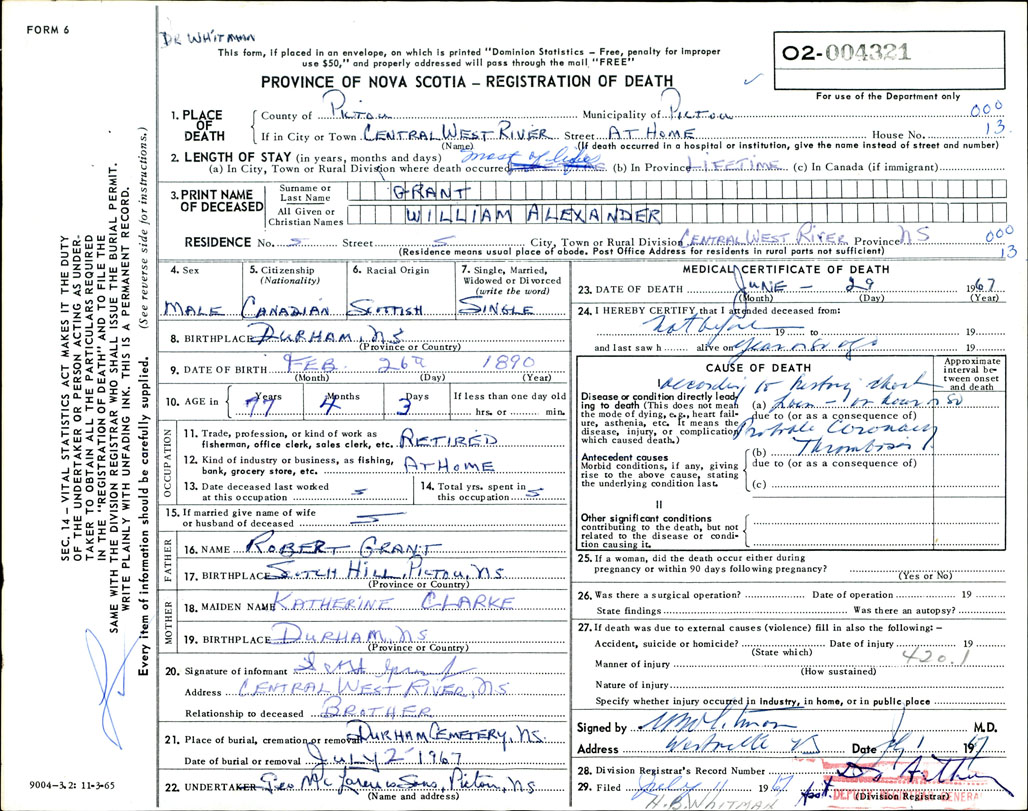 FORM 6
DR WHITMAN
This form, if placed in an envelope, on which is printed "Dominion Statistics – Free, penalty for improper
use $50," and properly addressed will pass through the mail "FREE"
PROVINCE OF NOVA SCOTIA – REGISTRATION OF DEATH
O2-004321
For use of the Department only
1. PLACE OF DEATH
County of PICTOU Municipality of PICTOU 000
If in City or Town CENTRAL WEST RIVER Street AT HOME House No. 13
(Name) (If death occurred in a hospital or institution, give the name instead of street and number)
2. LENGTH OF STAY (in years, months and days) most of life
(a) In City, Town or Rural Division where death occurred (b) In Province LIFETIME (c) In Canada (if immigrant)
3. PRINT NAME OF DECEASED
Surname or Last Name GRANT
All Given or Christian Names WILLIAM ALEXANDER
RESIDENCE No. Street City, Town or Rural Division CENTRAL WEST RIVER Province NS 000
(Residence means usual place of abode. Post Office Address for residents in rural parts not sufficient) 13
4. Sex MALE
5. Citizenship (Nationality) CANADIAN
6. Racial Origin SCOTTISH
7. Single, Married, Widowed or Divorced (write the word) SINGLE
8. BIRTHPLACE DURHAM, NS
(Province or Country)
9. DATE OF BIRTH FEB 26 1890
(Month) (Day) (Year)
10. AGE in 77 Years 4 Months 3 Days
If less than one day old
hrs. or min.
OCCUPATION
11. Trade, profession, or kind of work as
fisherman, office clerk, sales clerk, etc. RETIRED
12. Kind of industry or business, as fishing,
bank, grocery store, etc. AT HOME
13. Date deceased last worked
at this occupation
14. Total yrs. spent in
this occupation
15. If married give name of wife
or husband of deceased
FATHER
16. NAME ROBERT GRANT
17. BIRTHPLACE SCOTCH HILL, PICTOU, NS
(Province or Country)
MOTHER
18. MAIDEN NAME KATHERINE CLARKE
19. BIRTHPLACE DURHAM, NS
(Province or Country)
20. Signature of informant
Address CENTRAL WEST RIVER, NS
Relationship to deceased BROTHER
21. Place of burial, cremation or removal DURHAM CEMETERY, NS.
Date of burial or removal JULY 2 1967
22. UNDERTAKER Geo McLaren & Sons, Pictou, NS
(Name and address)
MEDICAL CERTIFICATE OF DEATH
23. DATE OF DEATH JUNE – 29 1967
(Month) (Day) (Year)
24. I HEREBY CERTIFY, that I attended deceased from:
not before 19 to 19
and last saw h alive on year or so ago 19
CAUSE OF DEATH
Approximate interval between onset and death
I
Disease or condition directly leading to death (This does not mean the mode of dying, e.g., heart failure, asthenia, etc. It means the disease, injury, or complication which caused death.)
according to history short
(a) or hour or so
due to (or as a consequence of)
Probable Coronary
(b) Thrombosis
due to (or as a consequence of)
(c)
Antecedent causes
Morbid conditions, if any, giving rise to the above cause, stating the underlying condition last.
II
Other significant conditions
contributing to the death, but not related to the disease or condition causing it.
25. If a woman, did the death occur either during
pregnancy or within 90 days following pregnancy?
(Yes or No)
26. Was there a surgical operation? Date of operation 19
State findings Was there an autopsy?
27. If death was due to external causes (violence) fill in also the following: –
Accident, suicide or homicide? Date of injury 19
(State which) 420.1
Manner of injury
(How sustained)
Nature of injury
Specify whether injury occurred in Industry, in home, or in public place
Signed by M.D.
Address Westville NS Date July 1 1967
28. Division Registrar's Record Number
29. Filed July 11 1967
(Division Registrar)
Asst. DEPUTY REGISTRAR GENERAL
H. B. WHITMAN
9004–3.2: 11-3-65
SEC. 14 – VITAL STATISTICS ACT MAKES IT THE DUTY
OF THE UNDERTAKER OR PERSON ACTING AS UNDER-
TAKER TO OBTAIN ALL THE PARTICULARS REQUIRED
IN THE "REGISTRATION OF DEATH" AND TO FILE THE
SAME WITH THE DIVISION REGISTRAR WHO SHALL ISSUE THE BURIAL PERMIT.
WRITE PLAINLY WITH UNFADING INK. THIS IS A PERMANENT RECORD.
Every item of information should be carefully supplied. (See reverse side for instructions.)